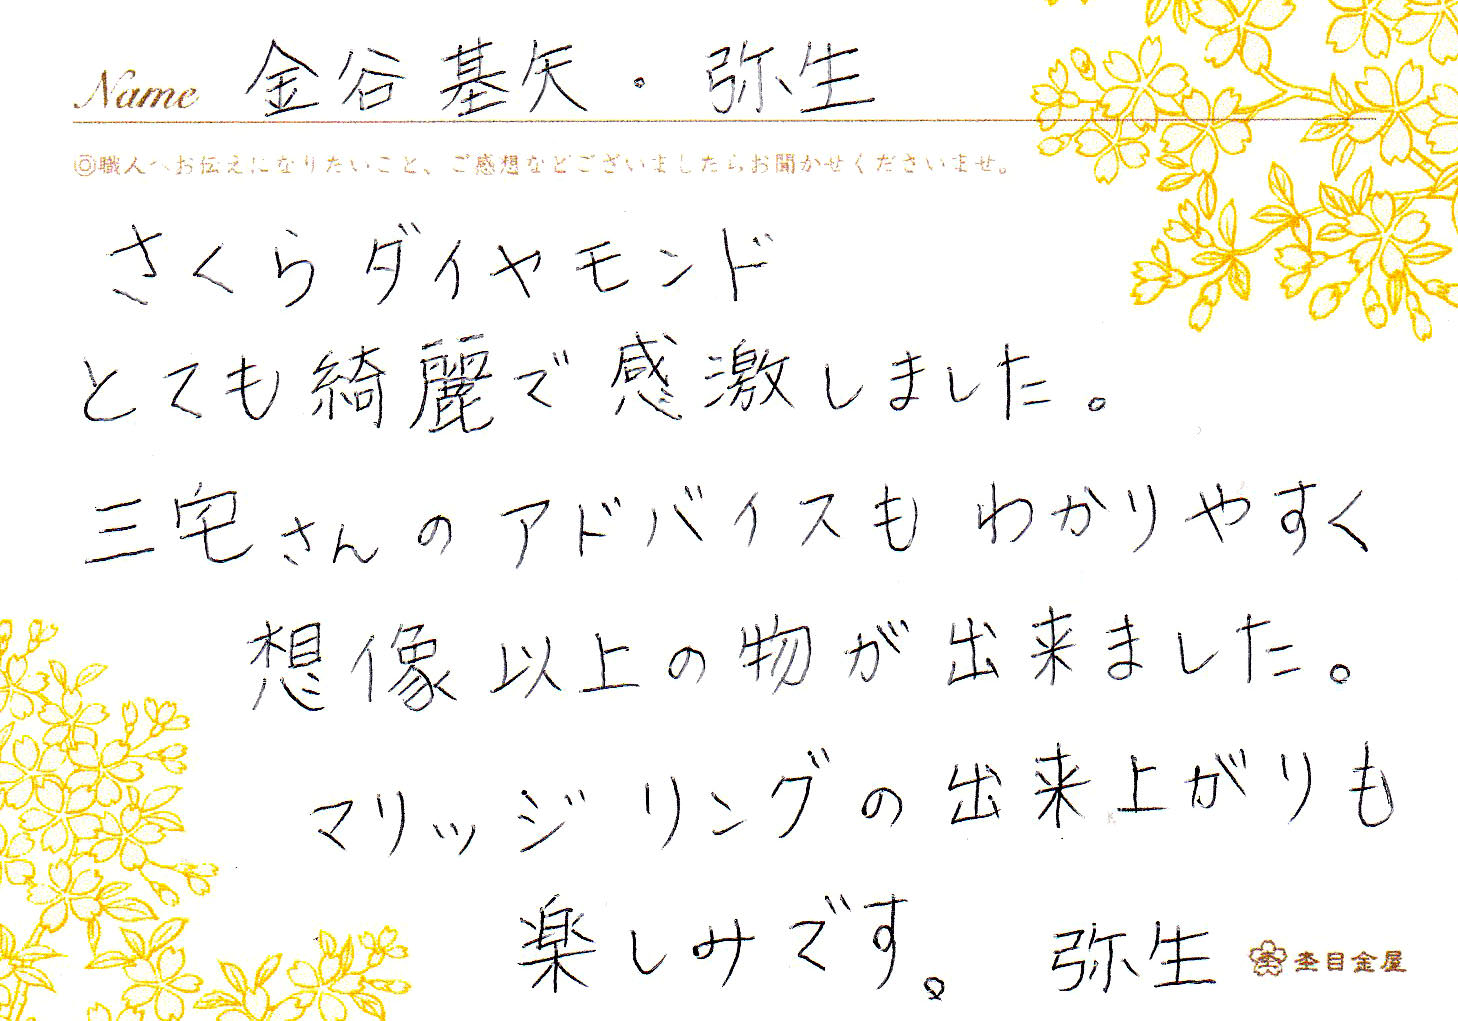 Name 金谷 基矢・弥生
◎職人へお伝えになりたいこと、ご感想などございましたらお聞かせくださいませ。
さくらダイヤモンド
とても綺麗で感激しました。
三宅さんのアドバイスもわかりやすく
想像以上の物が出来ました。
マリッジリングの出来上がりも
楽しみです。 弥生
杢目金屋